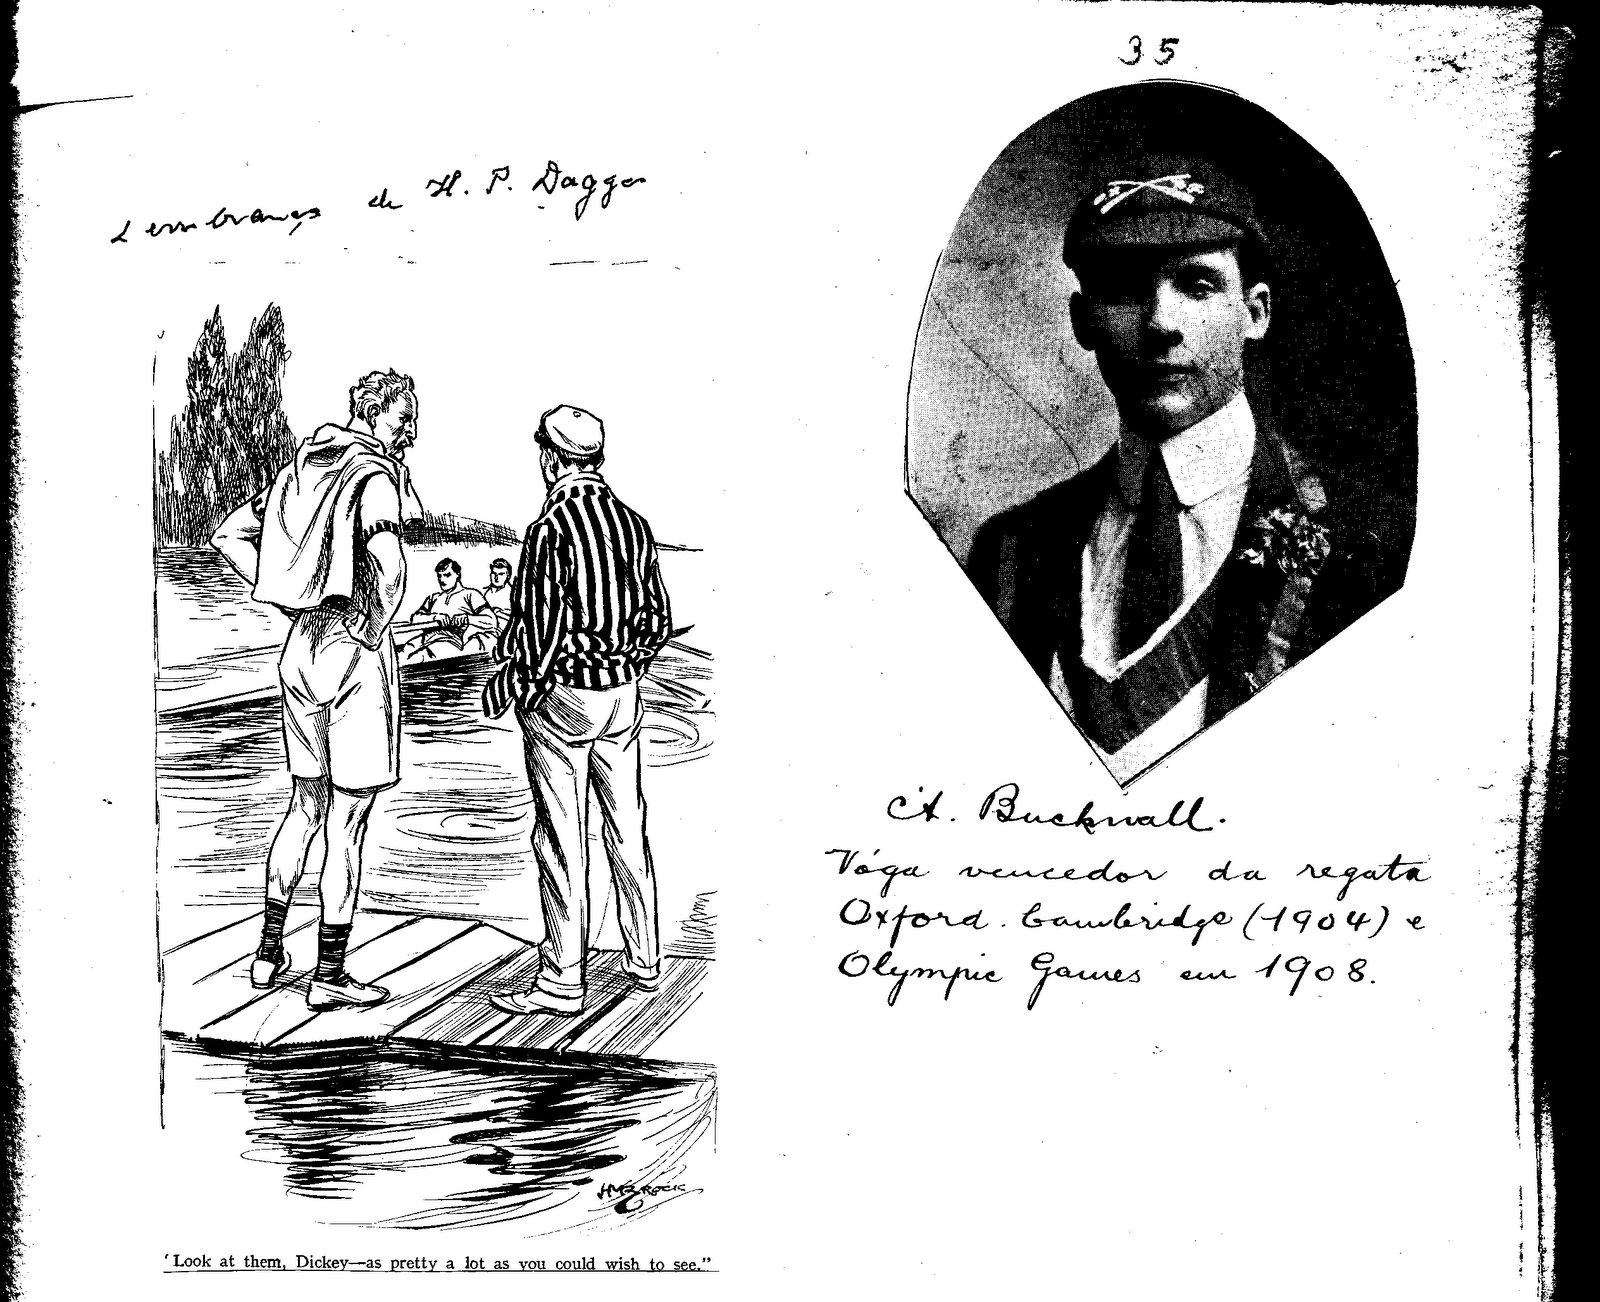 35
Lembrança de H. P. Dagge
H M BROCK
‘Look at them, Dickey—as pretty a lot as you could wish to see.”
A. Bucknall.
Vóga vencedor da regata
Oxford. Cambridge (1904) e
Olympic Games em 1908.